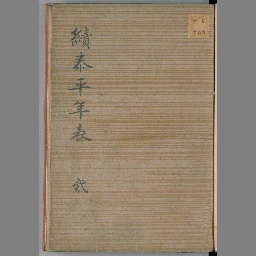 續泰平年表 弐